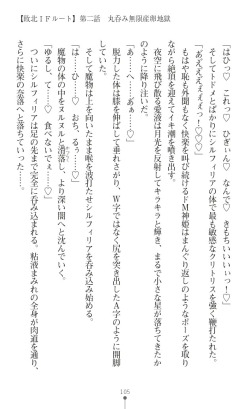 【敗北IFルート】第二話　丸呑み無限産卵地獄
「はひっ♡　これっ♡　ひぎぃん♡　なんで♡　きもちいいぃっ！♡」
そしてトドメとばかりにシルフィリアの体で最も敏感なクリトリスを強く鞭打たれた。
「あええええぇぇぇっ！♡♡♡」
もはや恥も外聞もなく快楽を叫び続けるドM神姫はまんぐり返しのようなポーズを取り
ながら絶頂を迎えてイキ潮を噴き出す。
夜空に飛び散る愛液は月光を反射してキラキラと輝き、まるで小さな星が落ちてきたか
のように降り注いだ。
「あ……へ……あぁ♡」
脱力した体は膝を伸ばして垂れさがり、W字ではなく尻を突き出したA字のように開脚
そして魔物は上を向いたまま喉を波打たせシルフィリアを呑み込み始める。
「は……ひ……♡　おち、るぅ……♡」
魔物の体の中をヌルヌルと滑落し、より深い闇へと沈んでいく。
「ゆるし、て……♡　食べないでぇ……！♡」
シルフィリアは足の先まで完全に呑み込まれる。粘液まみれの全身が肉道を通り、
さらに快楽の奈落へと落ちていった……。
105